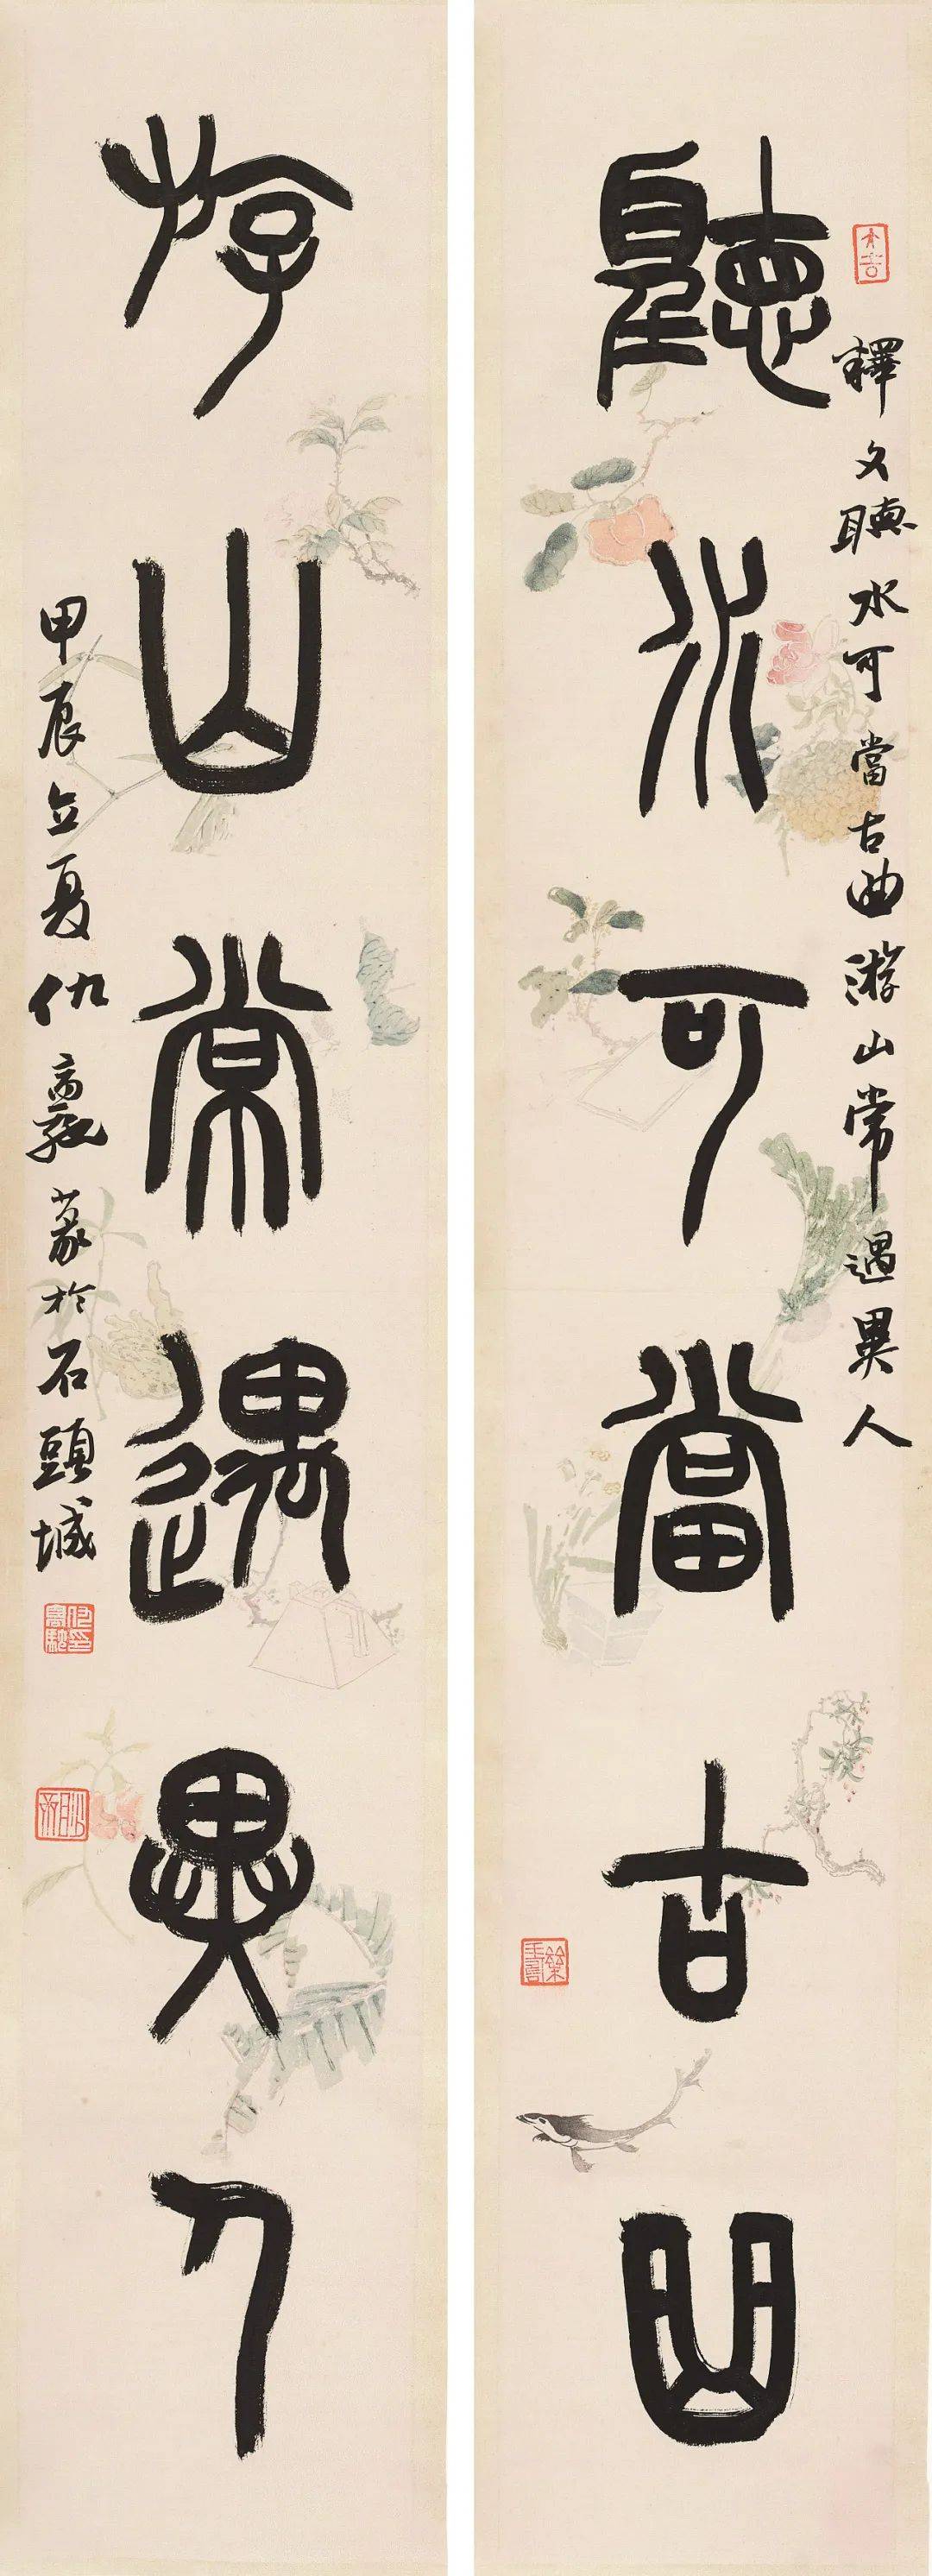 聽水可當古曲
釋文聽水可當古曲游山常遇異人
大吉
游山常遇異人
甲辰立夏仇高馳篆於石頭城